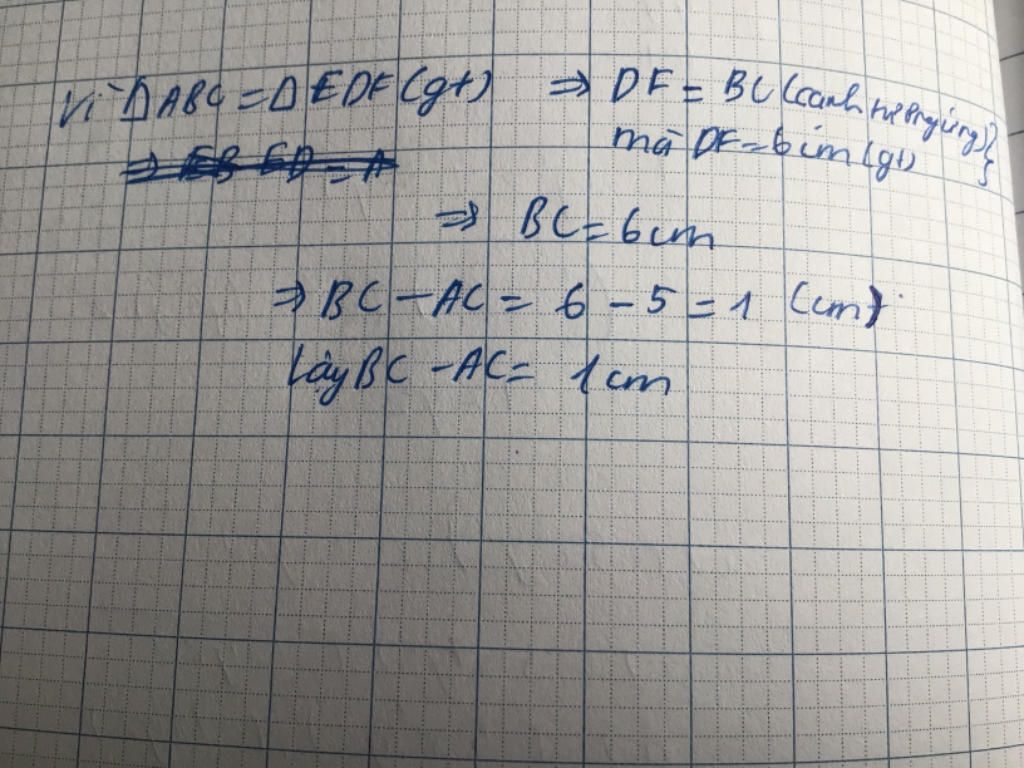 Vì ΔABC = ΔEDF (gt) ⇒ DF = BC (cạnh tương ứng) }
mà DF = 6 cm (gt)
⇒ BC = 6 cm
⇒ BC - AC = 6 - 5 = 1 (cm).
Vậy BC - AC = 1 cm